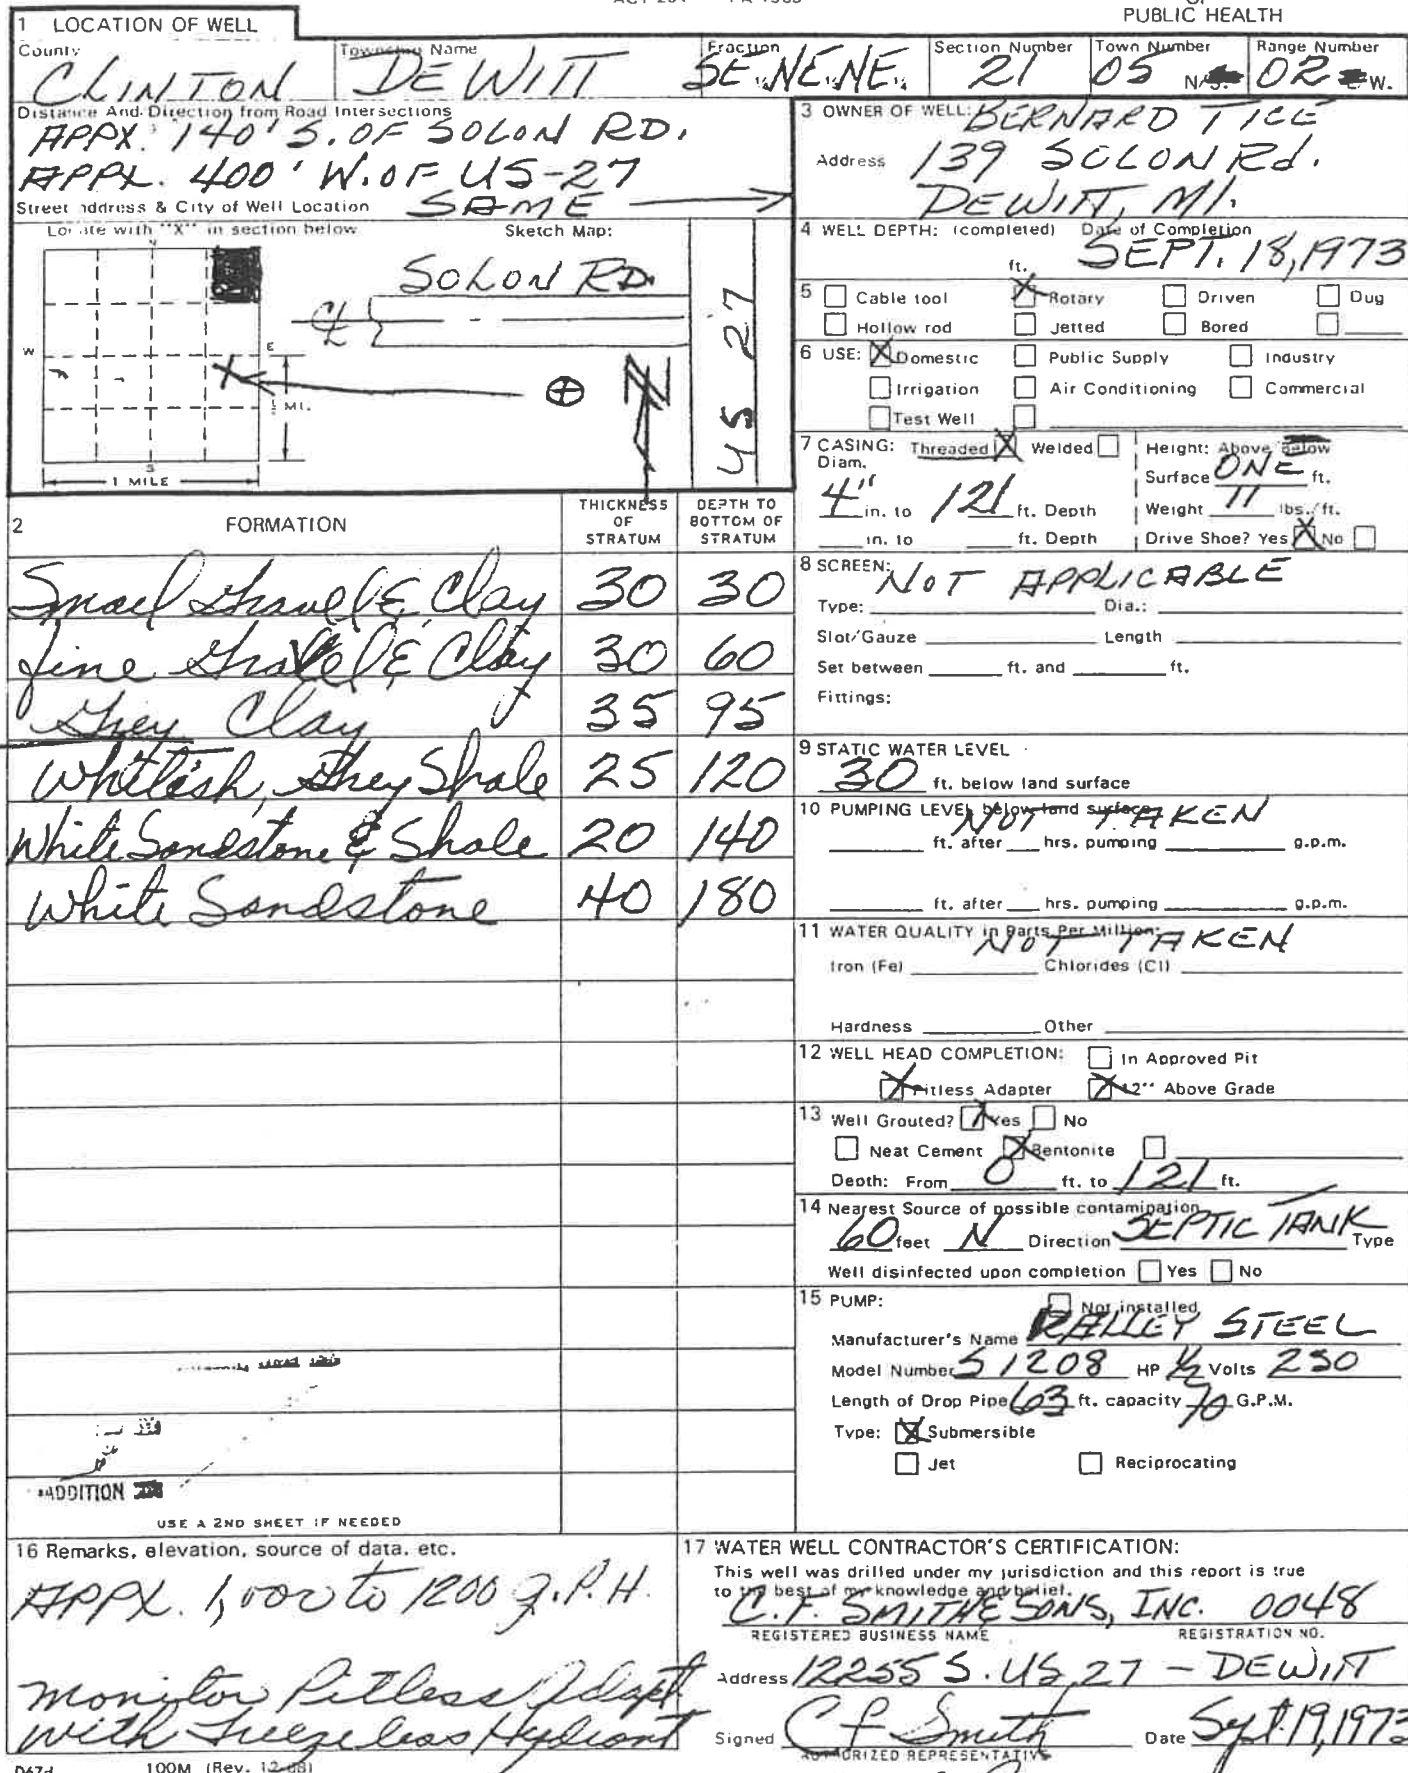 PUBLIC HEALTH
1 LOCATION OF WELL
County Township Name Fraction Section Number Town Number Range Number
CLINTON DE WITT SE NE NE 21 05 N/S. 02 W.
Distance And Direction from Road Intersections
APPX. 140' S. OF SOLON RD.
APPX. 400' W. OF US-27
Street address & City of Well Location SAME
Locate with "X" in section below Sketch Map:
N
W
E
S
½ MI.
1 MILE
SOLON RD.
℄
N
US 27
3 OWNER OF WELL: BERNARD TICE
Address 139 SOLON Rd.
DEWITT, MI.
4 WELL DEPTH: (completed) Date of Completion
ft. SEPT. 18, 1973
5 Cable tool Rotary Driven Dug
Hollow rod Jetted Bored
6 USE: Domestic Public Supply Industry
Irrigation Air Conditioning Commercial
Test Well
7 CASING: Threaded Welded Height: Above Below
Diam. Surface ONE ft.
4" in. to 121 ft. Depth Weight 11 lbs./ft.
in. to ft. Depth Drive Shoe? Yes No
2 FORMATION THICKNESS OF STRATUM DEPTH TO BOTTOM OF STRATUM
Small Gravel & Clay 30 30
Fine Gravel & Clay 30 60
Grey Clay 35 95
Whitish, Grey Shale 25 120
White Sandstone & Shale 20 140
White Sandstone 40 180
ADDITION
USE A 2ND SHEET IF NEEDED
8 SCREEN: NOT APPLICABLE
Type: Dia.:
Slot/Gauze Length
Set between ft. and ft.
Fittings:
9 STATIC WATER LEVEL
30 ft. below land surface
10 PUMPING LEVEL below land surface NOT TAKEN
ft. after hrs. pumping g.p.m.
ft. after hrs. pumping g.p.m.
11 WATER QUALITY in Parts Per Million: NOT TAKEN
Iron (Fe) Chlorides (Cl)
Hardness Other
12 WELL HEAD COMPLETION: In Approved Pit
Pitless Adapter 12" Above Grade
13 Well Grouted? Yes No
Neat Cement Bentonite
Depth: From 0 ft. to 121 ft.
14 Nearest Source of possible contamination
60 feet N Direction SEPTIC TANK Type
Well disinfected upon completion Yes No
15 PUMP: Not installed
Manufacturer's Name STEEL
Model Number S1208 HP ½ Volts 230
Length of Drop Pipe 63 ft. capacity G.P.M.
Type: Submersible
Jet Reciprocating
16 Remarks, elevation, source of data, etc.
APPX. 1,000 to 1200 g.P.H.
Monitor Pitless Adapt
with Freezeless Hydrant
17 WATER WELL CONTRACTOR'S CERTIFICATION:
This well was drilled under my jurisdiction and this report is true
to the best of my knowledge and belief.
C.F. SMITH & SONS, INC. 0048
REGISTERED BUSINESS NAME REGISTRATION NO.
Address 12255 S. US 27 - DEWITT
Signed C F Smith Date Sept. 19, 1973
AUTHORIZED REPRESENTATIVE
D67d 100M (Rev. 12-68)